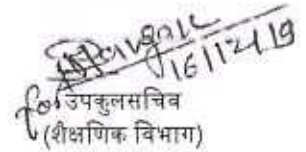 16/12/19
for उपकुलसचिव
(शैक्षणिक विभाग)